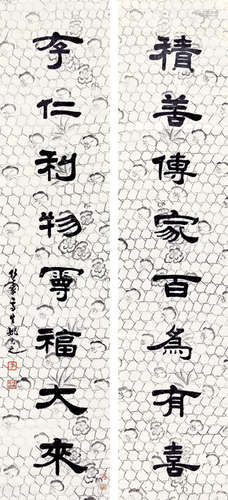 積善傳家百為有喜
存仁利物寧福大來